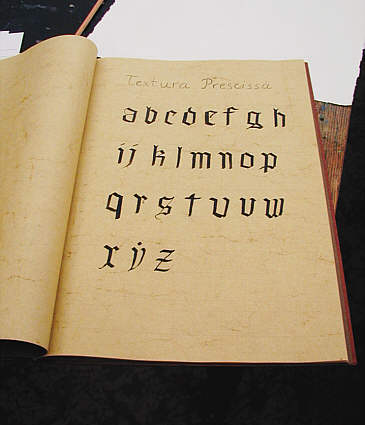 Textura Prescissa
a b c d e f g h
i j k l m n o p
q r s t u v w
x ÿ z